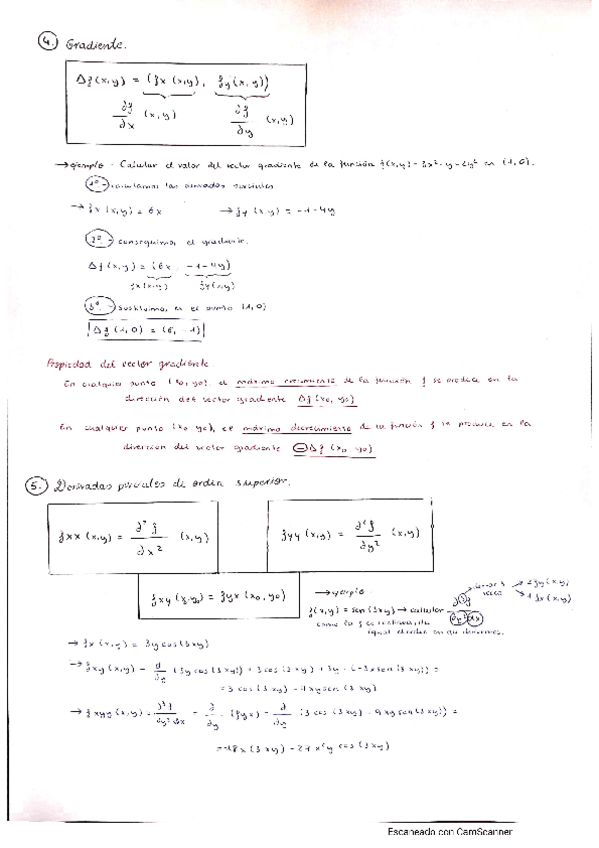 4. Gradiente.
Δf(x,y) = (fx(x,y), fy(x,y))
∂f/∂x (x,y) ∂f/∂y (x,y)
→ejemplo - Calcular el valor del vector gradiente de la función f(x,y) = 3x² - y - 2y² en (1,0).
1º- calculamos las derivadas parciales
→ fx(x,y) = 6x → fy(x,y) = -1-4y
2º- conseguimos el gradiente.
Δf(x,y) = (6x, -1-4y)
fx(x,y) fy(x,y)
3º- sustituimos en el punto (1,0)
Δf(1,0) = (6, -1)
Propiedad del vector gradiente
En cualquier punto (x0, y0), el máximo crecimiento de la función f se produce en la
dirección del vector gradiente Δf(x0, y0)
En cualquier punto (x0, y0), el máximo decrecimiento de la función f se produce en la
dirección del vector gradiente -Δf(x0, y0)
5. Derivadas parciales de orden superior.
fxx(x,y) = ∂²f/∂x² (x,y) fyy(x,y) = ∂²f/∂y² (x,y)
fxy(x0,y0) = fyx(x0,y0) →ejemplo
f(x,y) = sen(3xy) → calcular ∂³f/∂y²∂x
2 fy(x,y)
1 fx(x,y)
→ fx(x,y) = 3y cos(3xy)
→ fxy(x,y) = ∂/∂y (3y cos(3xy)) = 3 cos(3xy) + 3y · (-3x sen(3xy)) =
= 3 cos(3xy) - 9xy sen(3xy)
→ fxyy(x,y) = ∂³f/∂y²∂x = ∂/∂y · (fyx) = ∂/∂y (3 cos(3xy) - 9xy sen(3xy)) =
= -18x (3xy) - 27x²y cos(3xy)
Escaneado con CamScanner